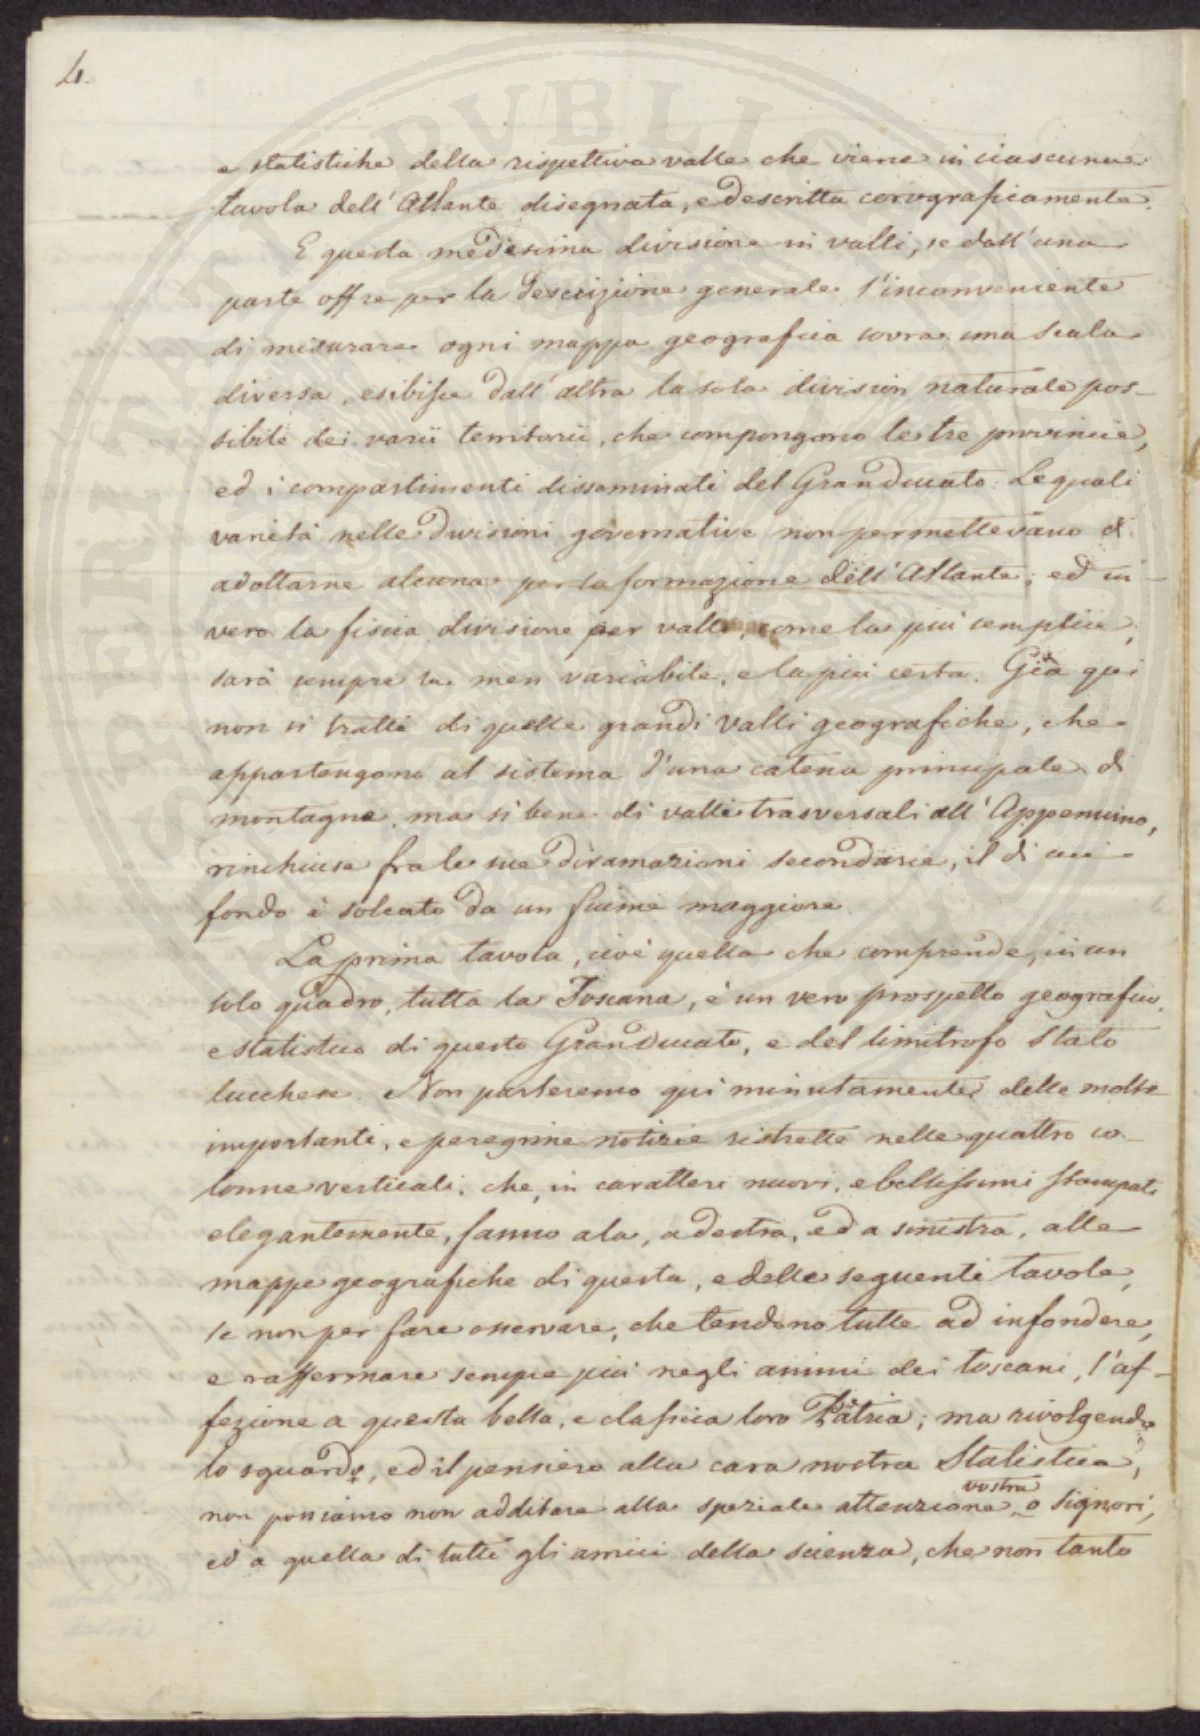 4.
e statistiche della rispettiva valle che viene in ciascuna
tavola dell'Atlante disegnata, e descritta corograficamente.
E questa medesima divisione in valli, se dall'una
parte offre per la descrizione generale l'inconveniente
di misurare ogni mappa geografica sovra una scala
diversa, esibisce dall'altra la sola division naturale pos-
sibile dei varii territorii, che compongono le tre provincie,
ed i compartimenti disseminati del Granducato. Le quali
varietà nelle divisioni governative non permettevano di
adottarne alcuna per la formazione dell'Atlante; ed in-
vero la fisica divisione per valli, come la più semplice,
sarà sempre la men variabile, e la più certa. Già qui
non si tratta di quelle grandi valli geografiche, che
appartengono al sistema d'una catena principale di
montagne, ma sì bene di valli trasversali all'Appennino,
rinchiuse fra le sue diramazioni secondarie, il di cui
fondo è solcato da un fiume maggiore.
La prima tavola, cioè quella che comprende, in un
solo quadro, tutta la Toscana, è un vero prospetto geografico,
e statistico di questo Granducato, e del limitrofo Stato
lucchese. Non parleremo qui minutamente delle molte
importanti, e peregrine notizie ristrette nelle quattro co-
lonne verticali, che, in caratteri nuovi, e bellissimi stampati
elegantemente, fanno ala, a destra, ed a sinistra, alle
mappe geografiche di questa, e delle seguenti tavole,
se non per fare osservare, che tendono tutte ad infondere,
e raffermare sempre più negli animi dei toscani, l'af-
fezione a questa bella, e classica loro Patria; ma rivolgendo
lo sguardo, ed il pensiero alla cara nostra Statistica,
non possiamo non additare alla speziale attenzione vostra, o Signori,
ed a quella di tutti gli amici della scienza, che non tanto